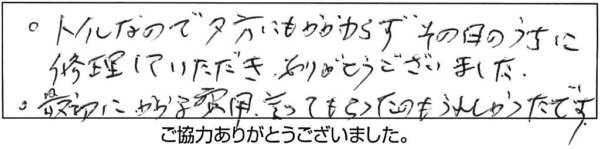 ○ トイレなので夕方にもかかわらずその日のうちに
修理していただき、ありがとうございました。
○ 最初にかかる費用、言ってもらったのもうれしかったです
ご協力ありがとうございました。